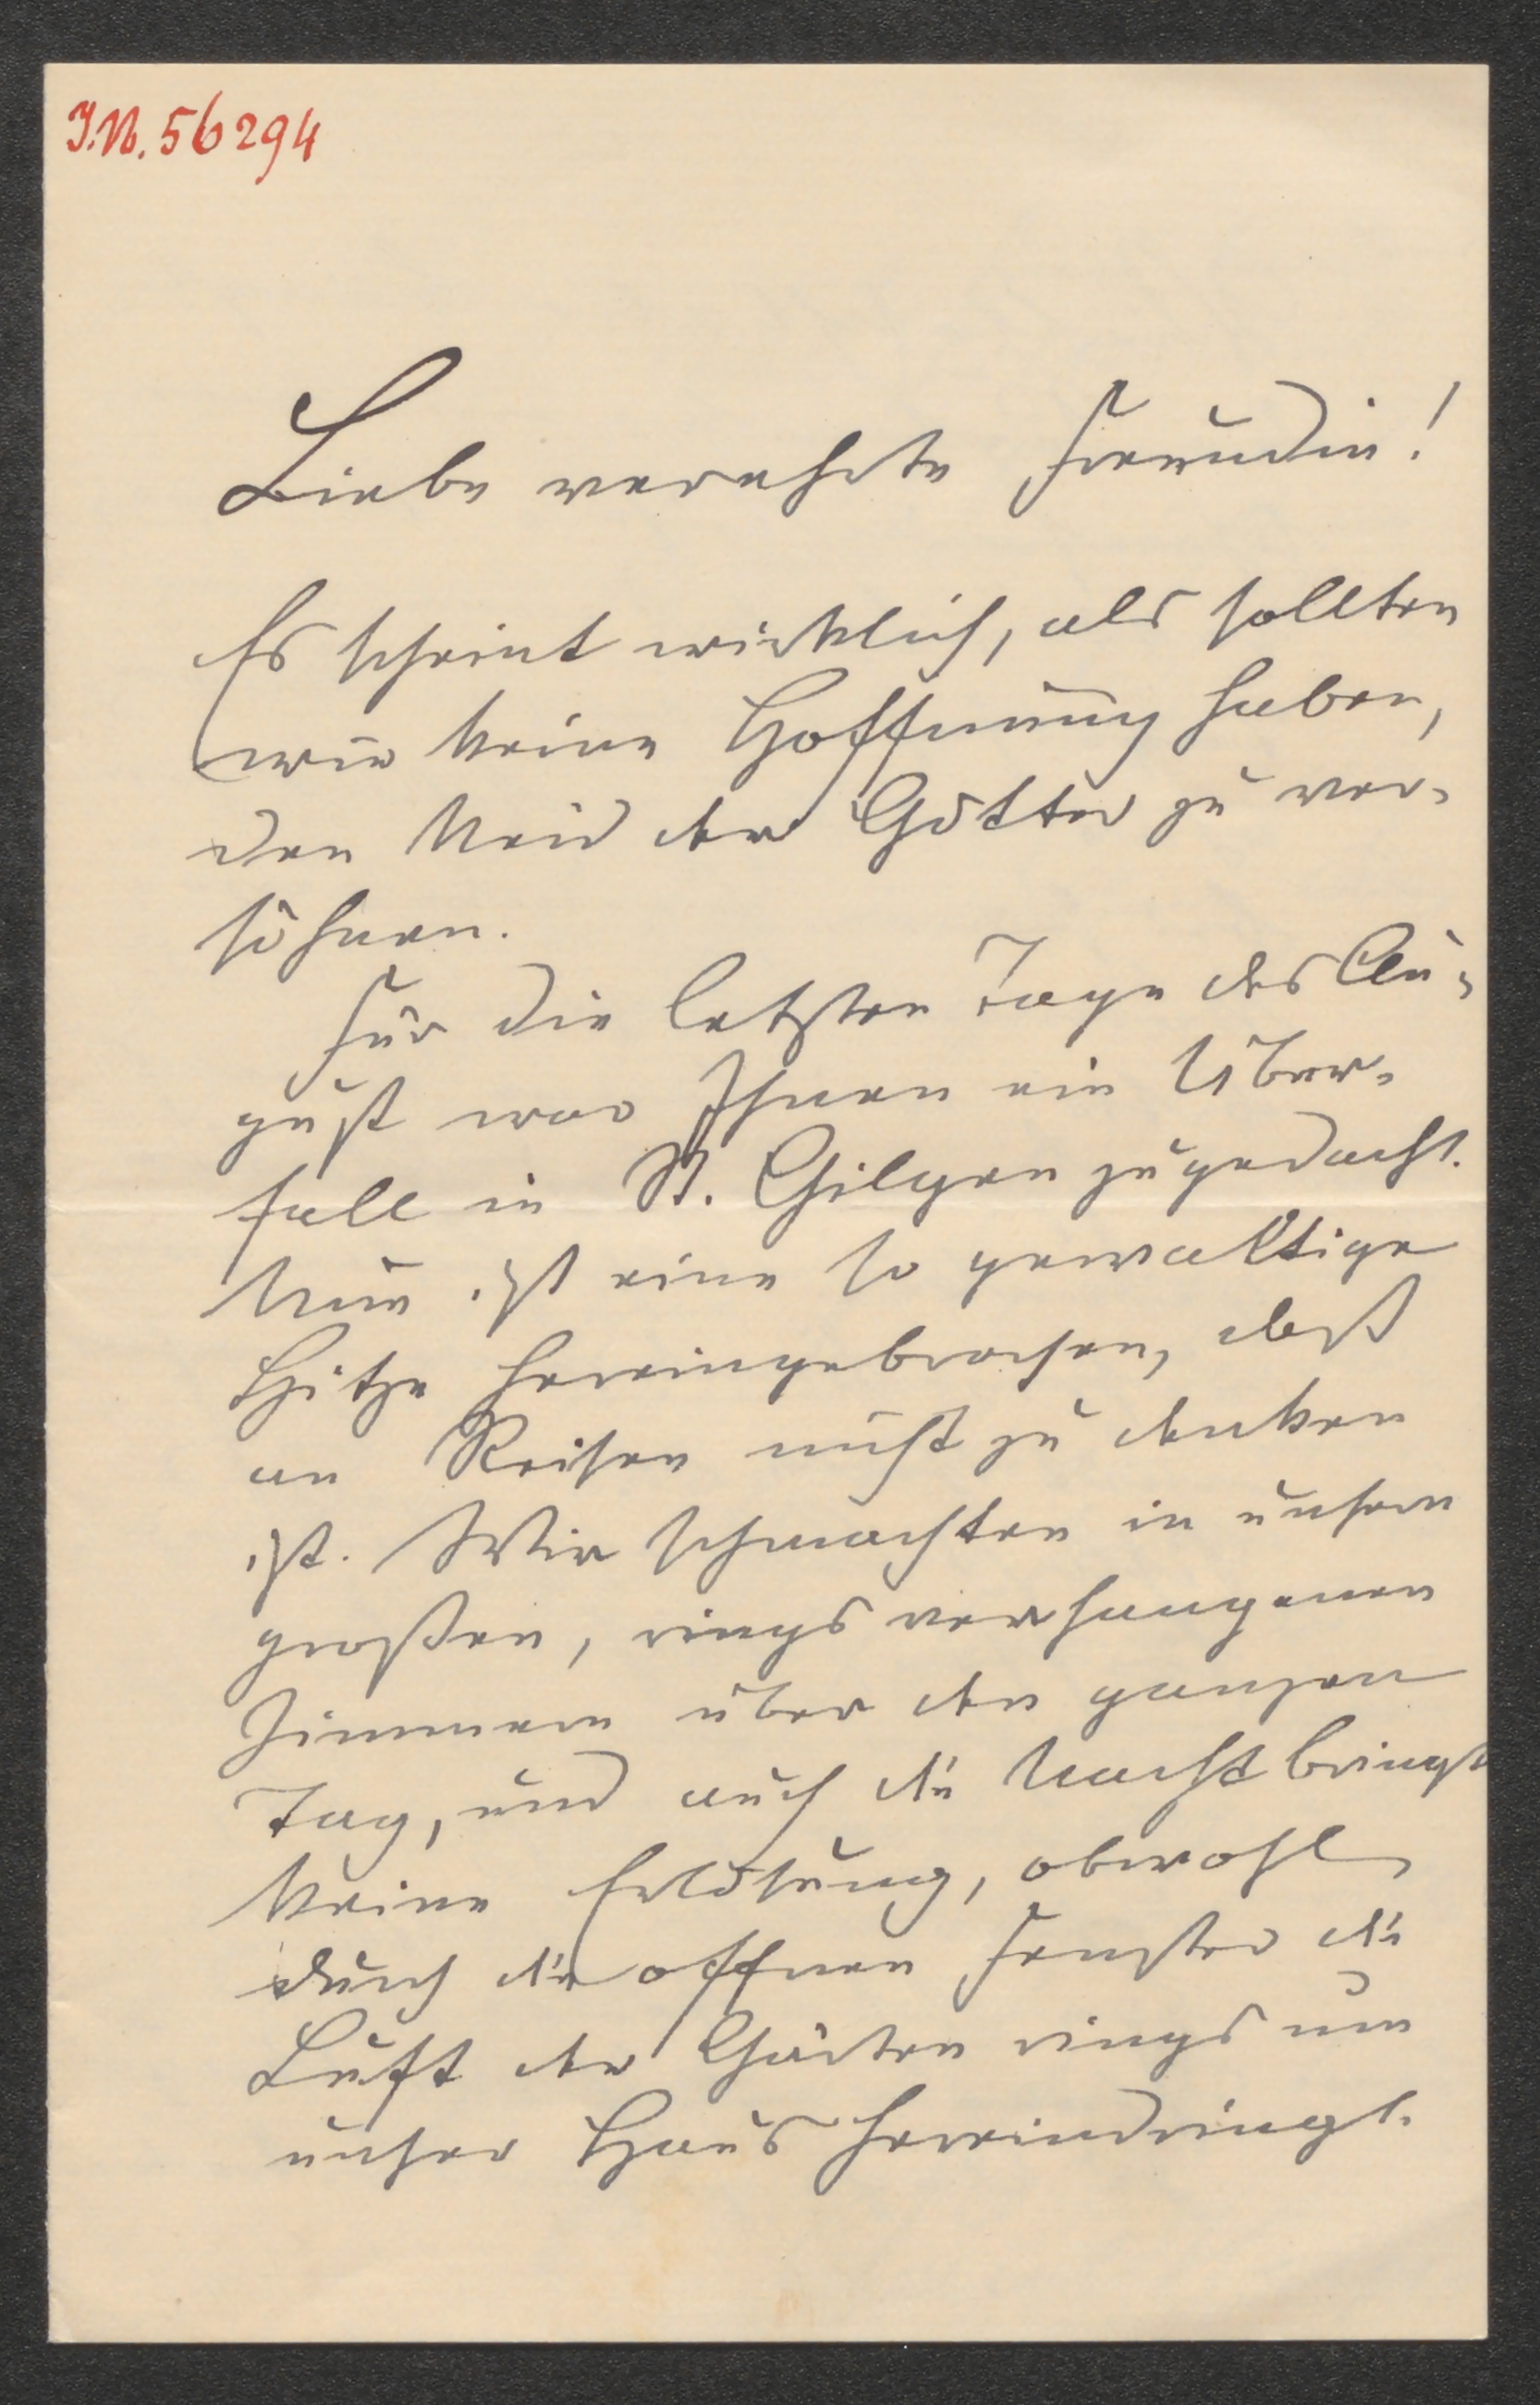 J.N. 56294
Liebe verehrte Freundin!
Es scheint wirklich, als sollten
wir keine Hoffnung haben,
den Neid der Götter zu ver-
söhnen.
Für die letzten Tage des Au-
gust war Ihnen ein Über-
fall in St. Gilgen zugedacht.
Nun ist eine so gewaltige
Hitze hereingebrochen, daß
an Reisen nicht zu denken
ist. Wir schmachten in unsern
großen, rings verhangenen
Zimmern über den ganzen
Tag, und auch die Nacht bringt
keine Erlösung, obwohl
durch die offnen Fenster die
Luft der Gärten rings um
unser Haus hereindringt.